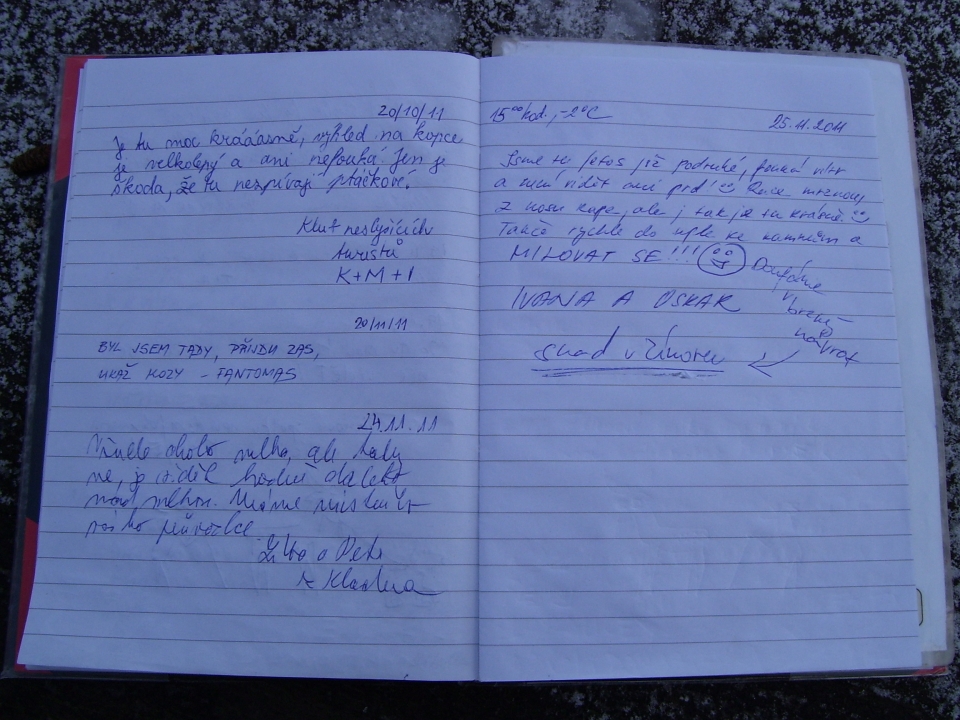 20/10/11
Je tu moc krááásně, výhled na kopce
je velkolepý a ani nefouká. Jen je
škoda, že tu nezpívají ptáčkové.
Klub neslyšících
turistů
K+M+I
20/11/11
BYL JSEM TADY, PŘÍJDU ZAS,
UKAŽ KOZY - FANTOMAS
24.11.11
Všude okolo mlha, ale tady
ne, je vidět hodně daleko
nad mlhou. Máme
průvodce
a Petr
z
15⁰⁰ hod., -2°C
25.11.2011
Jsme tu letos již podruhé, fouká vítr
a není vidět ani prd! Ruce mrznou,
z nosu kape, ale i tak je tu krásně.
Takže rychle do ke kamnům a
MILOVAT SE!!!
IVANA A OSKAR
Doufáme
v brzký
návrat
snad v únoru